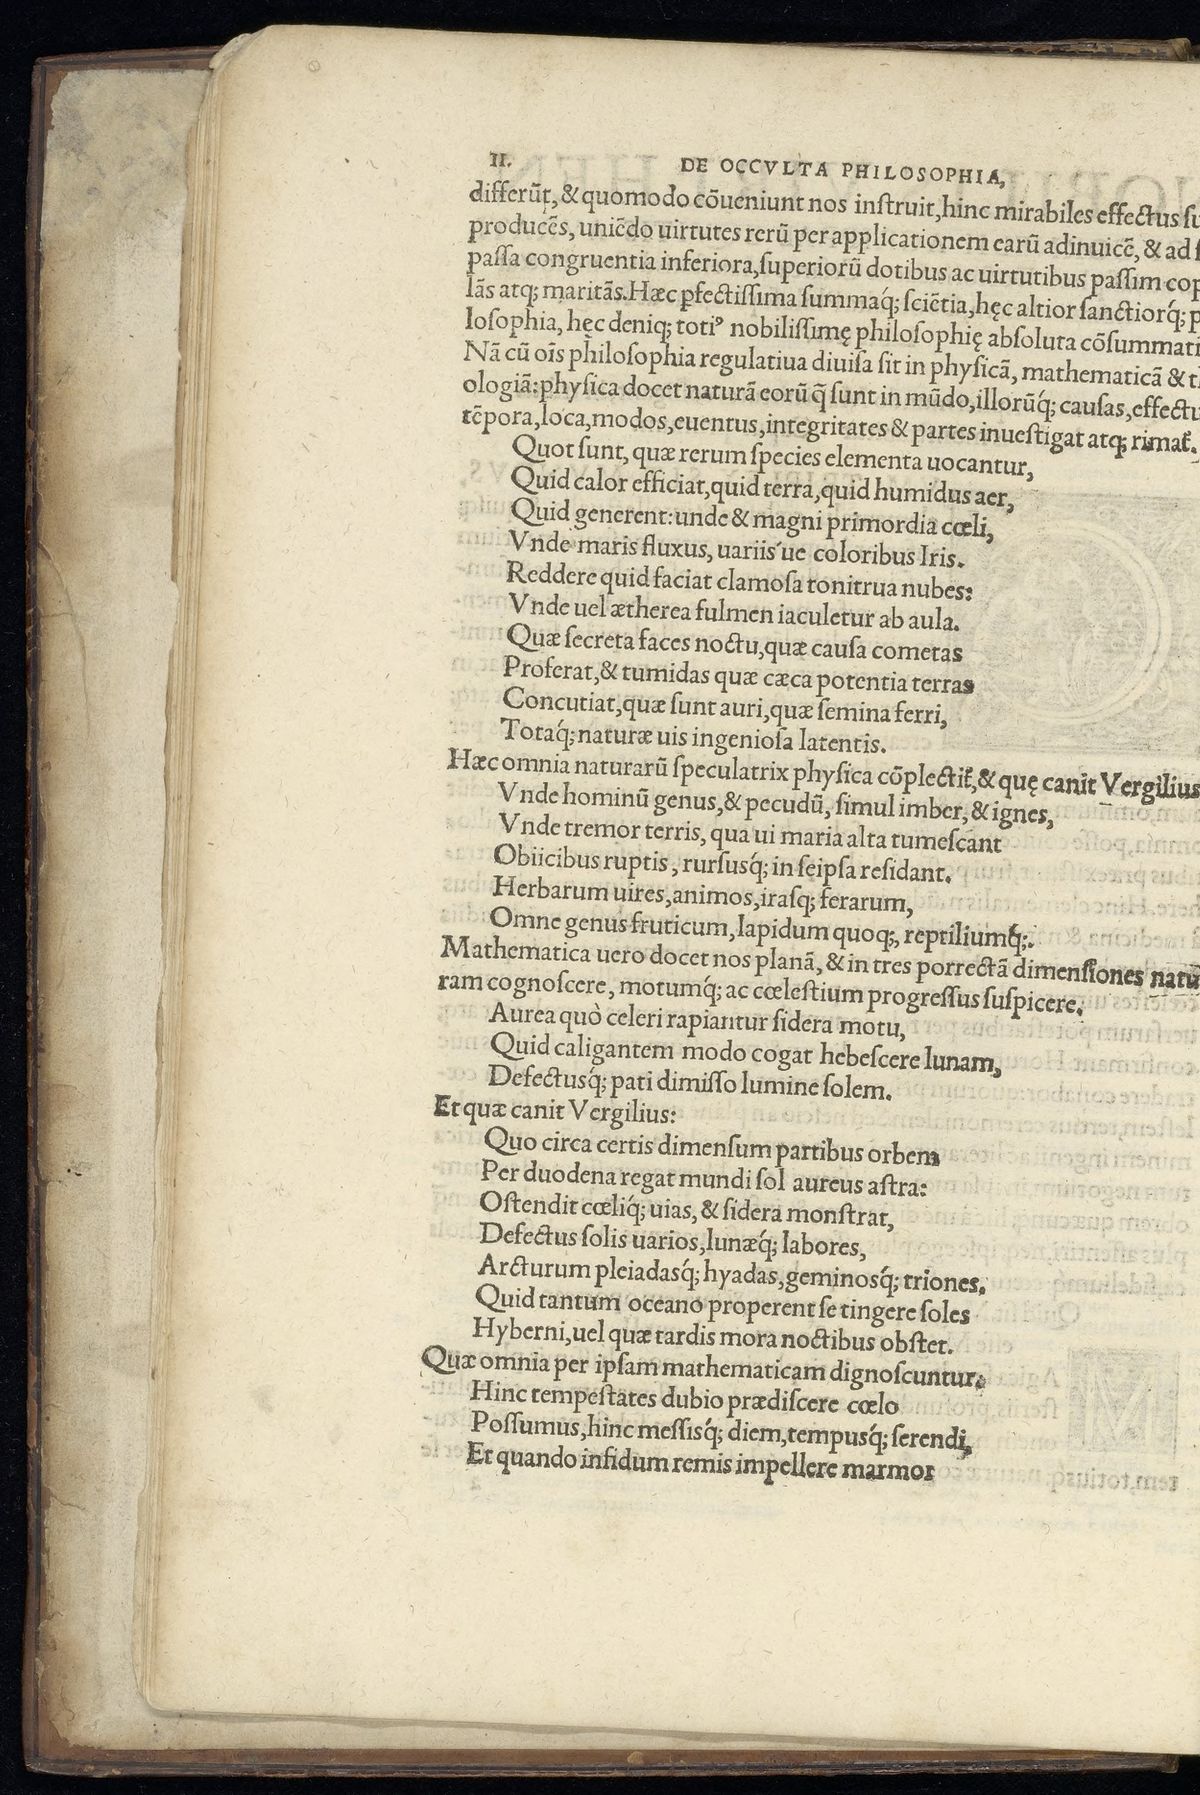 II. DE OCCVLTA PHILOSOPHIA,
differūt, & quomodo cōueniunt nos inſtruit, hinc mirabiles effectus
producēs, uniēdo uirtutes rerū per applicationem earū adinuicē, & ad
paſſa congruentia inferiora, ſuperiorū dotibus ac uirtutibus paſſim
lās atq; maritās. Hæc pfectiſſima ſummaq́; ſciētia, hęc altior ſanctiorq́;
loſophia, hęc deniq; totiꝰ nobiliſſimę philoſophię abſoluta
Nā cū oīs philoſophia regulatiua diuiſa ſit in phyſicā, mathematicā &
ologiā: phyſica docet naturā eorū q̄ ſunt in mūdo, illorūq́; cauſas,
tēpora, loca, modos, euentus, integritates & partes inueſtigat atq; rimat̃.
Quot ſunt, quæ rerum ſpecies elementa uocantur,
Quid calor efficiat, quid terra, quid humidus aer,
Quid generent: unde & magni primordia cœli,
Vnde maris fluxus, uariis´ue coloribus Iris.
Reddere quid faciat clamoſa tonitrua nubes:
Vnde uel ætherea fulmen iaculetur ab aula.
Quæ ſecreta faces noctu, quæ cauſa cometas
Proferat, & tumidas quæ cæca potentia terras
Concutiat, quæ ſunt auri, quæ ſemina ferri,
Totaq́; naturæ uis ingenioſa latentis.
Hæc omnia naturarū ſpeculatrix phyſica cōplectit̃, & quę canit Vergilius
Vnde hominū genus, & pecudū, ſimul imber, & ignes,
Vnde tremor terris, qua ui maria alta tumeſcant
Obiicibus ruptis, rurſusq́; in ſeipſa reſidant.
Herbarum uires, animos, iraſq; ferarum,
Omne genus fruticum, lapidum quoq;, reptiliumq́;.
Mathematica uero docet nos planā, & in tres porrectā dimenſiones natu
ram cognoſcere, motumq́; ac cœleſtium progreſſus ſuſpicere.
Aurea quò celeri rapiantur ſidera motu,
Quid caligantem modo cogat hebeſcere lunam,
Defectusq́; pati dimiſſo lumine ſolem.
Et quæ canit Vergilius:
Quo circa certis dimenſum partibus orbem
Per duodena regat mundi ſol aureus aſtra:
Oſtendit cœliq́; uias, & ſidera monſtrat,
Defectus ſolis uarios, lunæq́; labores,
Arcturum pleiadasq́; hyadas, geminosq́; triones.
Quid tantum oceano properent ſe tingere ſoles
Hyberni, uel quæ tardis mora noctibus obſtet.
Quæ omnia per ipſam mathematicam dignoſcuntur.
Hinc tempeſtates dubio prædiſcere cœlo
Poſſumus, hinc meſſisq́; diem, tempusq́; ſerendi,
Et quando infidum remis impellere marmor